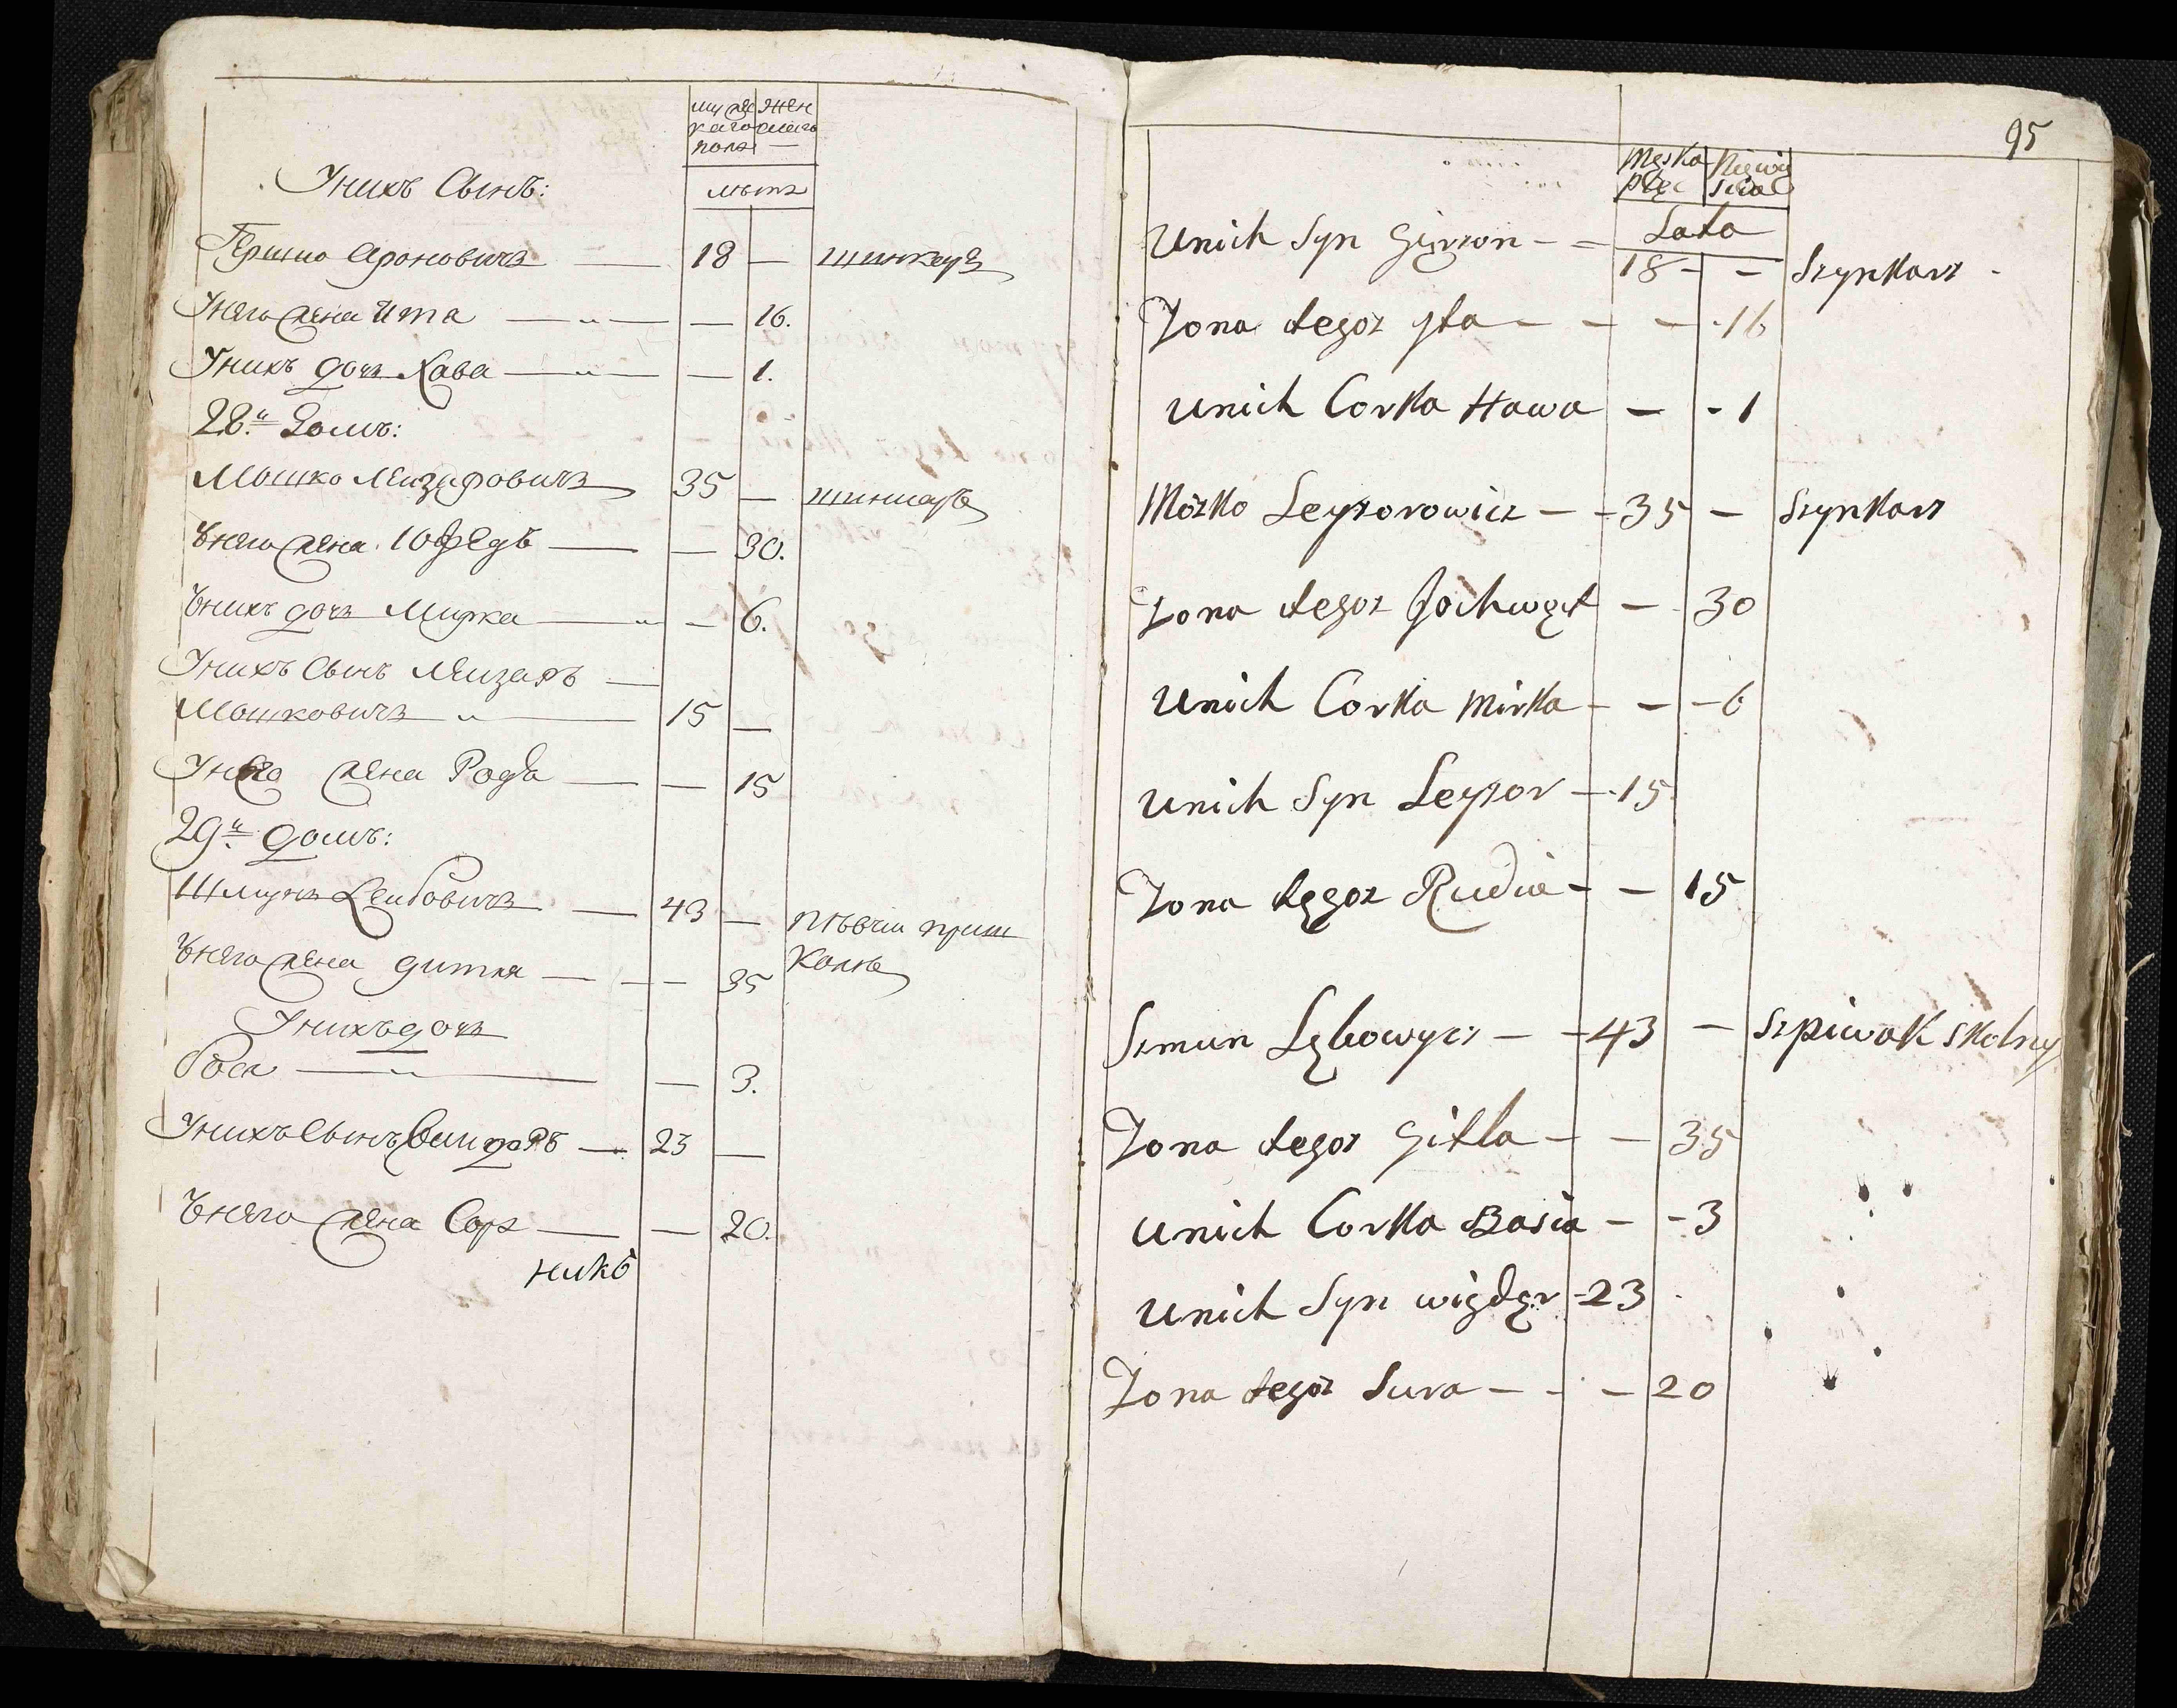 мужес жен
каго скаго
пола —
Уникъ Сынъ:
лѣта
Гершко Ароновичъ — 18 — шинкаръ
Унего жена Ита — „ — — 16.
Уникъ дочь Хава — „ — — 1.
28.й домъ:
Мошко Лейзаровичъ 35 — шинкаръ
Унего жена Юфедъ — — 30.
Унихъ дочь Мирка — „ — 6.
Унихъ Сынъ Лейзаръ —
Мошковичъ „ — 15 —
Унего жена Родя — — 15
29.й домъ:
Шмунъ Лейбовичъ — 43 — пѣвчій приш
Унего жена Дитля — — — 35 Колѣ
Унихъ дочь
Бася — „ — — 3.
Унихъ Сынъ Вигдоръ — 23 —
Унего жена Сора — — 20.
никъ
95
Męska Niewie
płęć scia
Lata
Unich Syn Gierszon – –
18 – – Szynkarz -
Zona tegoz Jta – – – 16
Unich Corka Hawa – - 1
Mozko Leyzorowicz – - 35 – Szynkarz
Zona tegoz Jochwęt – 30
Unich Corka Mirka – – – 6
Unich Syn Leyzor – 15
Zona tęgoz Rudia – – 15
Szmun Lębowycz – – 43 – Szpiwak Skolny
Zona tegoz Gitla – – 35
Unich Corka Basia – – 3
Unich Syn Wigdęr – 23
Zona tegoz Sura – – – 20